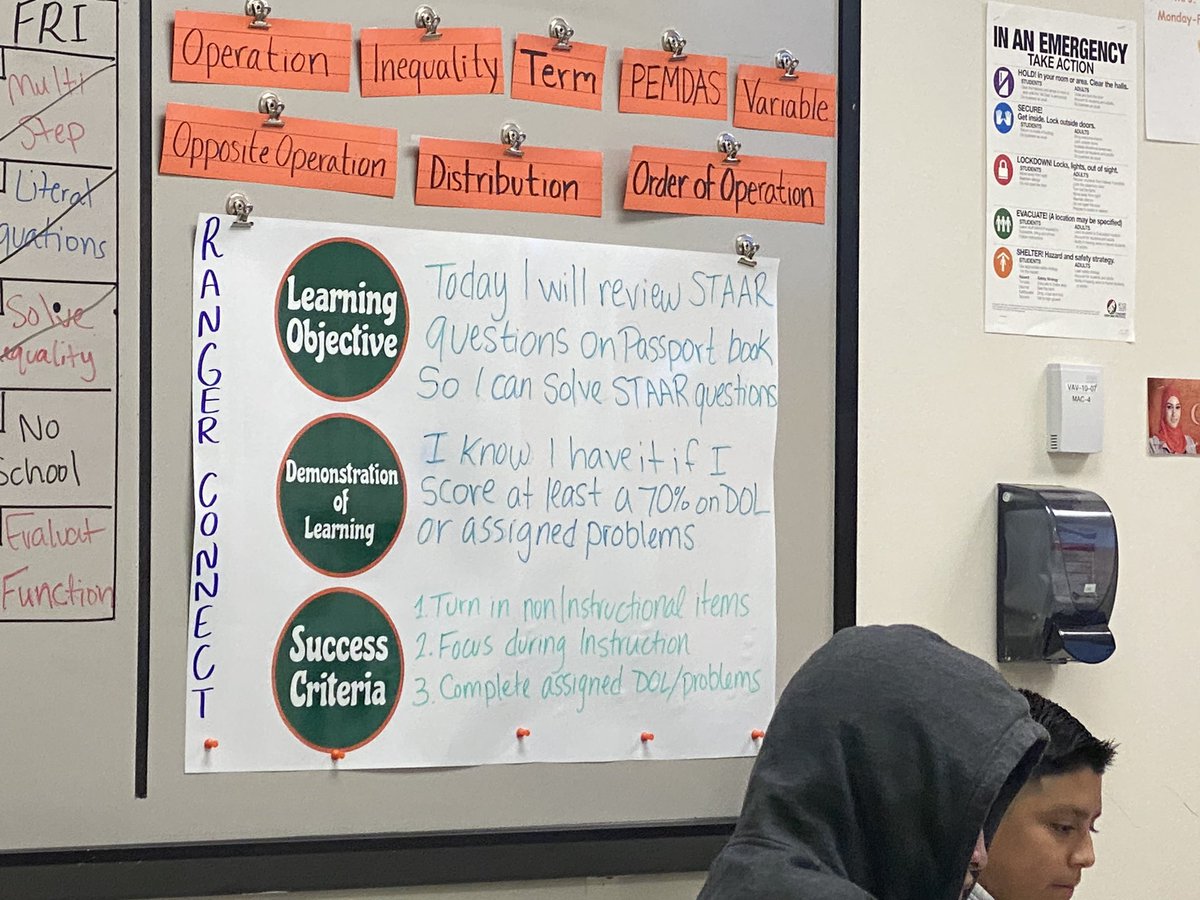 FRI
Multi
Step
Literal
quations
Solve
equality
No
School
Evaluat
Function
Operation
Inequality
Term
PEMDAS
Variable
Opposite Operation
Distribution
Order of Operation
RANGER CONNECT
Learning
Objective
Today I will review STAAR
questions on Passport book
So I can solve STAAR questions
Demonstration
of
Learning
I know I have it if I
Score at least a 70% on DOL
or assigned problems
Success
Criteria
1. Turn in non Instructional items
2. Focus during Instruction
3. Complete assigned DOL/problems
IN AN EMERGENCY
TAKE ACTION
HOLD! In your room or area. Clear the halls.
STUDENTS
ADULTS
SECURE!
Get inside. Lock outside doors.
STUDENTS
ADULTS
LOCKDOWN! Locks, lights, out of sight.
STUDENTS
ADULTS
EVACUATE! (A location may be specified)
STUDENTS
ADULTS
SHELTER! Hazard and safety strategy.
STUDENTS
ADULTS
Monday-F
VAV-19-07
MAC-4